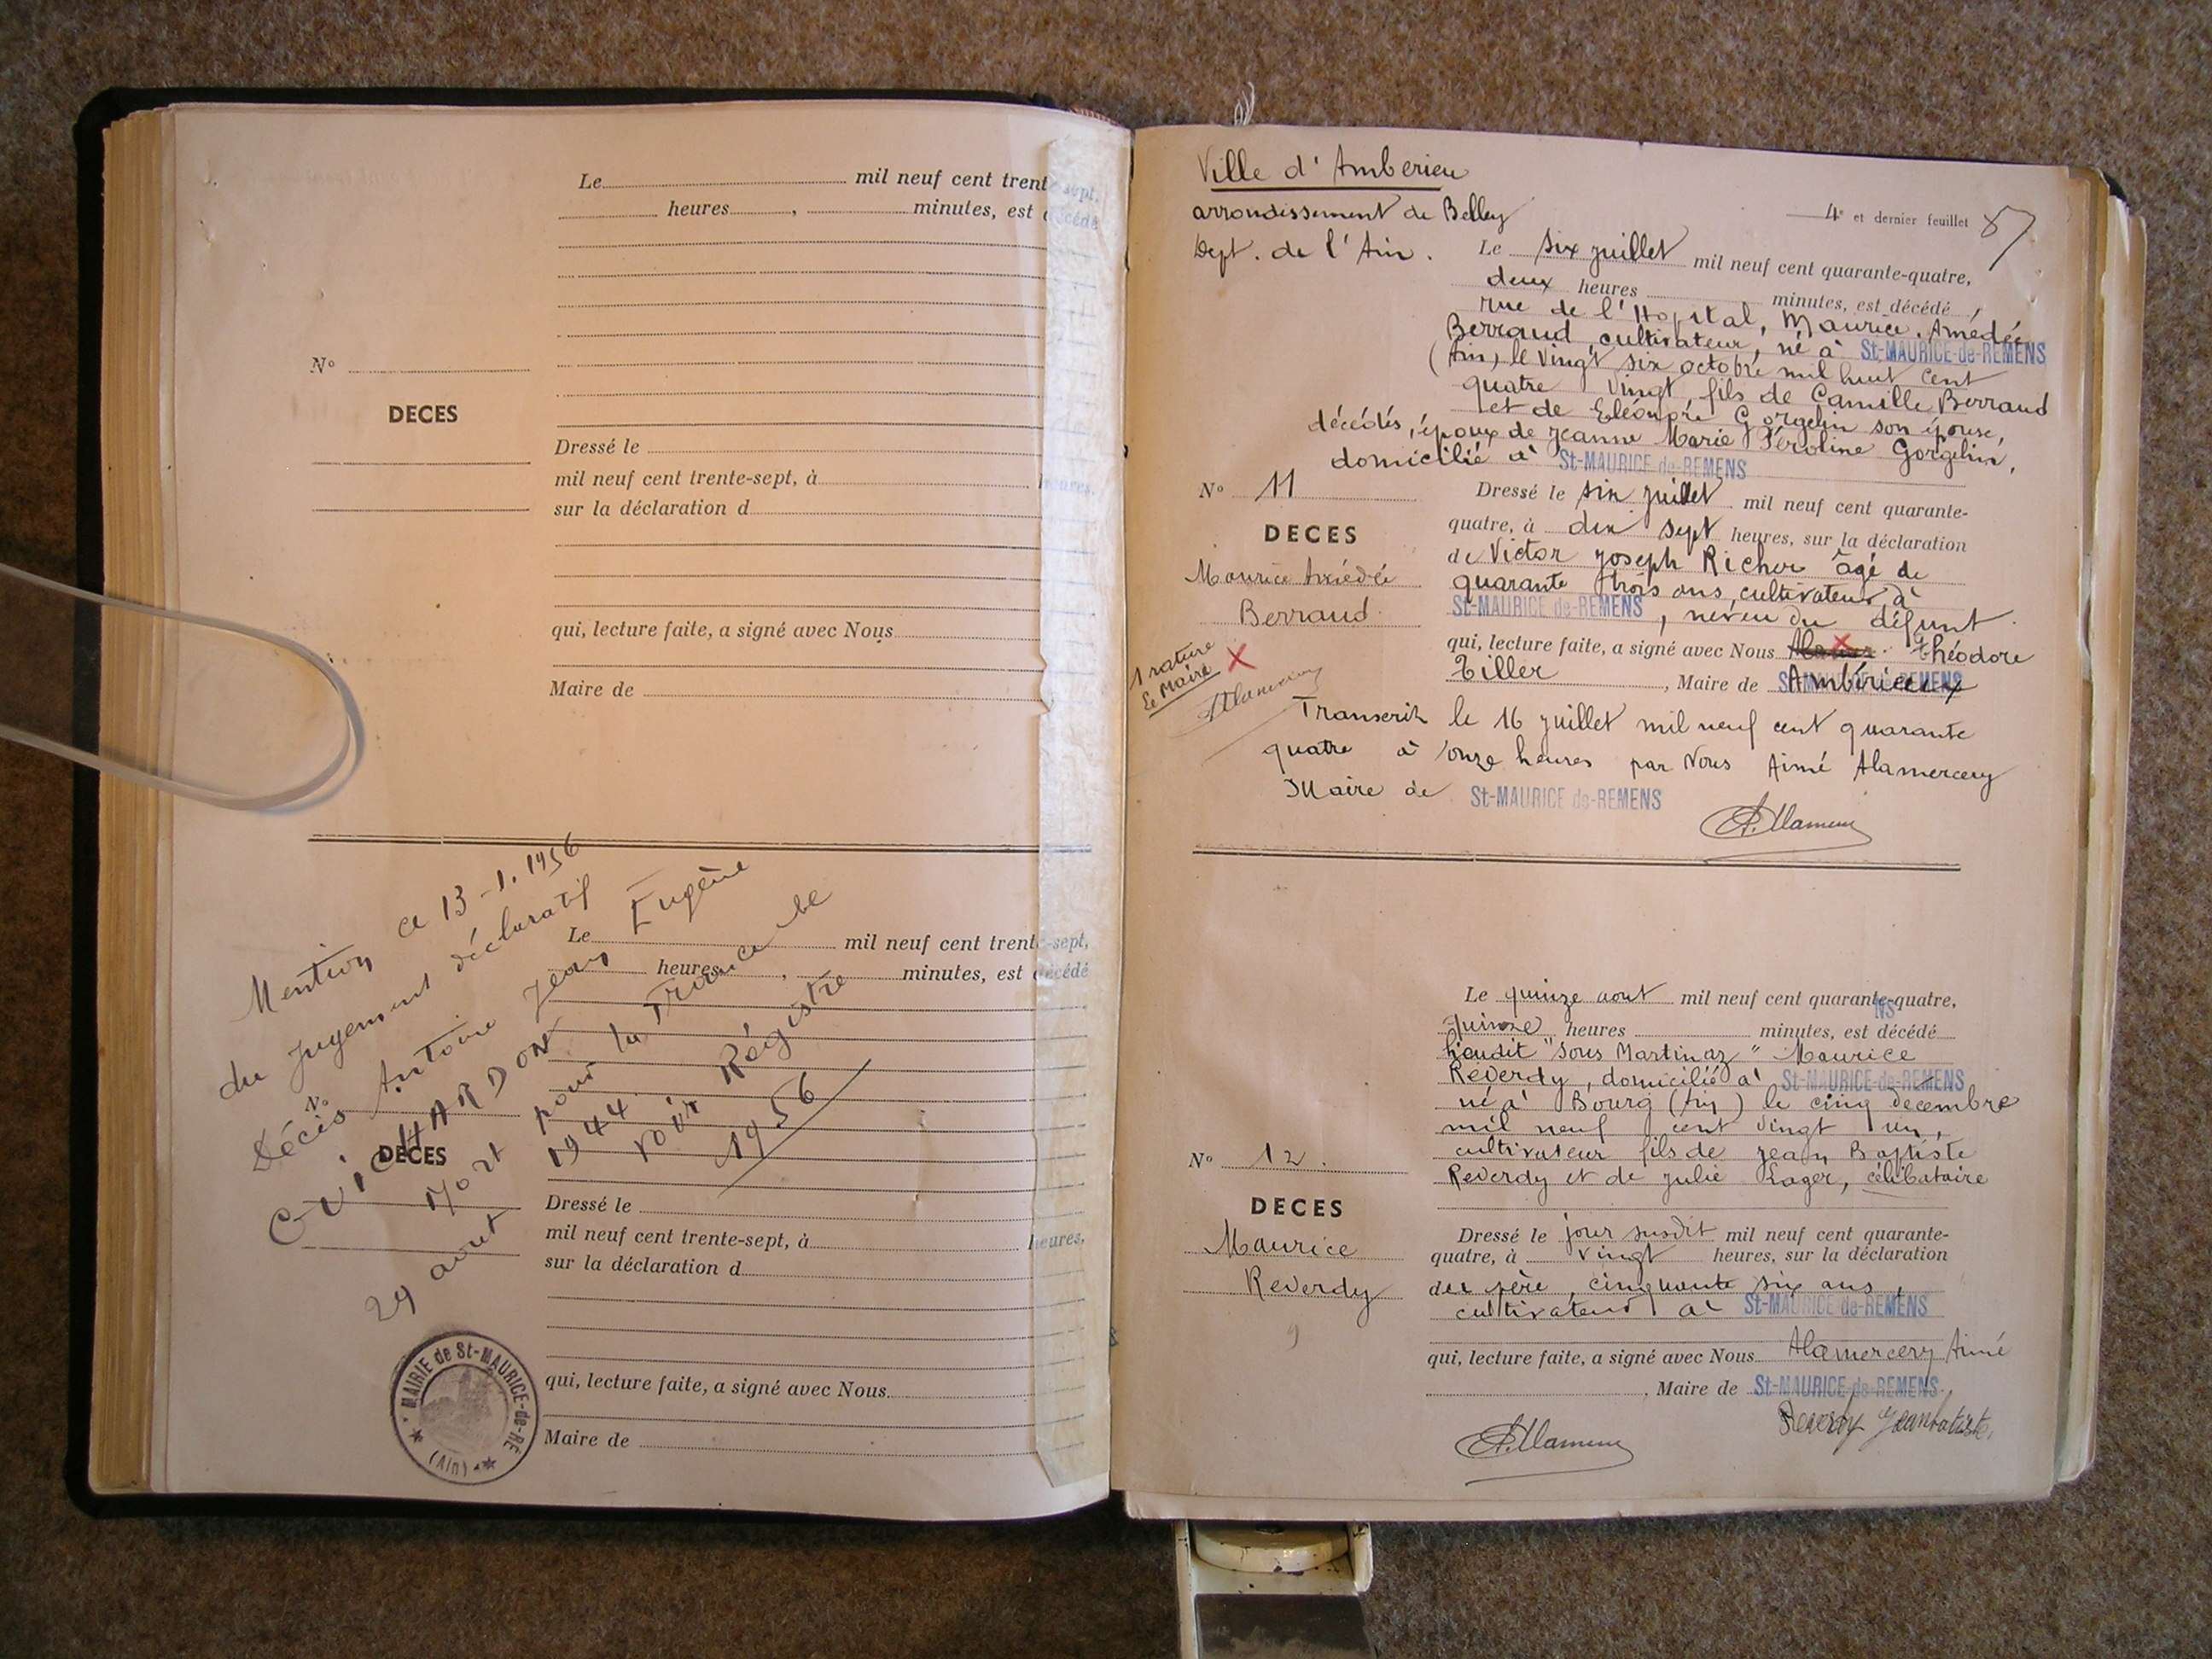 Le mil neuf cent trente-sept,
heures , minutes, est décédé
N°
DECES
Dressé le
mil neuf cent trente-sept, à heures,
sur la déclaration d
qui, lecture faite, a signé avec Nous
Maire de
Mention ce 13-1.1956
du jugement déclaratif
Décès Antoine Jean Eugène
GUICHARDON
Mort pour la France le
29 aout 1944 voir Régistre
1956
Le mil neuf cent trente-sept,
heures , minutes, est décédé
N°
DECES
Dressé le
mil neuf cent trente-sept, à heures,
sur la déclaration d
qui, lecture faite, a signé avec Nous
Maire de
MAIRIE de St-MAURICE-de-RE
(Ain)
Ville d'Amberieu
arrondissement de Belley
Dept. de l'Ain.
4e et dernier feuillet 87
Le six juillet mil neuf cent quarante-quatre,
deux heures minutes, est décédé,
rue de l'Hopital, Maurice, Amedée
Berraud cultivateur, né à St-MAURICE-de-REMENS
(Ain) le vingt six octobre mil huit cent
quatre vingt, fils de Camille Berraud
et de Eléonore Gorgelin son épouse,
décédés, époux de Jeanne Marie Péroline Gorgelin,
domicilié à St-MAURICE de-REMENS
N° 11
DECES
Maurice Amédée
Berraud
Dressé le six juillet mil neuf cent quarante-
quatre, à dix sept heures, sur la déclaration
de Victor Joseph Richer âgé de
quarante trois ans, cultivateur à
St-MAURICE de-REMENS, neveu du défunt
qui, lecture faite, a signé avec Nous Théodore
Tiller, Maire de Ambérieux
1 rature
Le Maire
Transcrit le 16 juillet mil neuf cent quarante
quatre à onze heures par Nous Aimé Alamercery
Maire de St-MAURICE de-REMENS
Le quinze aout mil neuf cent quarante-quatre,
quinze heures minutes, est décédé
lieudit "Sous Martinaz" Maurice
Reverdy, domicilié à St-MAURICE-de-REMENS
né à Bourg (Ain) le cinq decembre
mil neuf cent vingt un,
cultivateur fils de Jean Baptiste
Reverdy et de Julie Lager, célibataire
N° 12.
DECES
Maurice
Reverdy
Dressé le jour susdit mil neuf cent quarante-
quatre, à vingt heures, sur la déclaration
du père, cinquante six ans,
cultivateur à St-MAURICE de-REMENS
qui, lecture faite, a signé avec Nous Alamercery Aimé
, Maire de St-MAURICE-de-REMENS
Reverdy Jeanbatiste